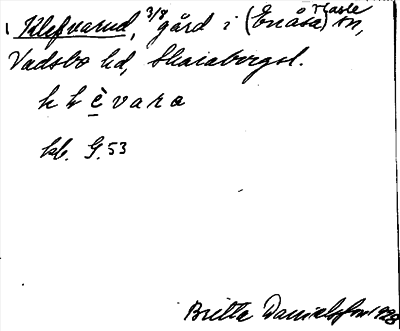 Klefvarud, 3/8 gård i (Enåsa) sn,
Vadsbo hd, Skaraborgsl.
k l è v a r a
kb. G. 53
Britta Danielsson 1928